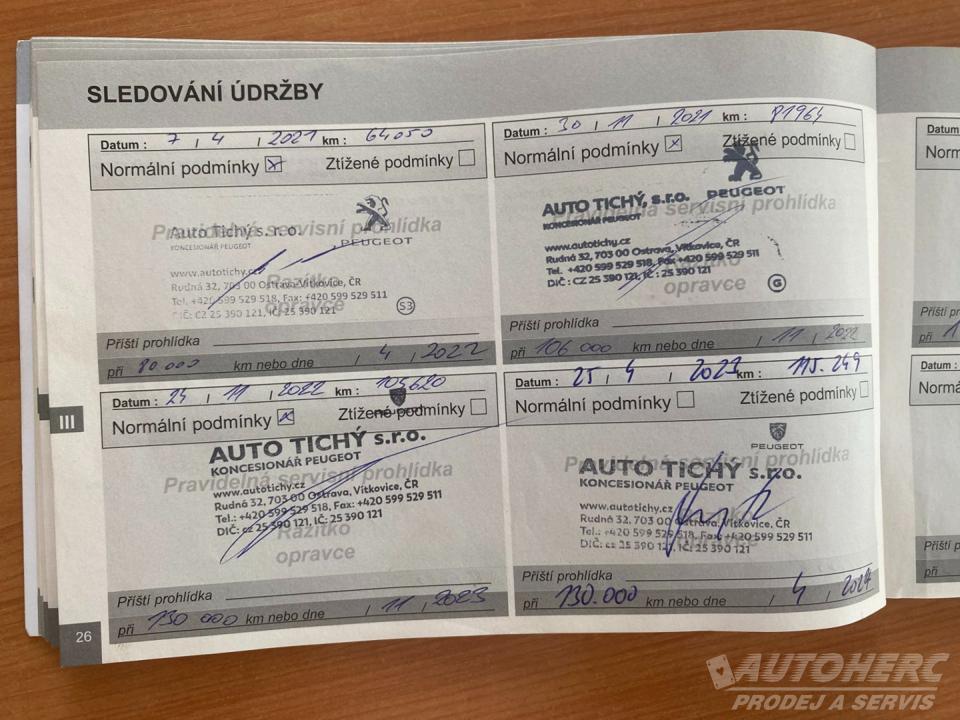 SLEDOVÁNÍ ÚDRŽBY
Datum : 7 / 4 / 2021 km : 64050
Normální podmínky Ztížené podmínky
Pravidelná servisní prohlídka
Auto Tichý s.r.o.
KONCESIONÁŘ PEUGEOT
PEUGEOT
www.autotichy.cz
Rudná 32, 703 00 Ostrava-Vítkovice, ČR
Tel. +420 599 529 518, Fax: +420 599 529 511
DIČ: CZ 25 390 121, IČ: 25 390 121
S3
Razítko
opravce
Příští prohlídka
při 80 000 km nebo dne / 4 / 2022
Datum : 30 / 11 / 2021 km : 81964
Normální podmínky Ztížené podmínky
PEUGEOT
AUTO TICHÝ, s.r.o.
Pravidelná servisní prohlídka
KONCESIONÁŘ PEUGEOT
www.autotichy.cz
Rudná 32, 703 00 Ostrava, Vítkovice, ČR
Tel. +420 599 529 518, Fax +420 599 529 511
DIČ : CZ 25 390 121, IČ : 25 390 121
G
Razítko
opravce
Příští prohlídka
při 106 000 km nebo dne / 11 / 2022
Datum : 24 / 11 / 2022 km : 105620
Normální podmínky Ztížené podmínky
AUTO TICHÝ s.r.o.
KONCESIONÁŘ PEUGEOT
Pravidelná servisní prohlídka
www.autotichy.cz
Rudná 32, 703 00 Ostrava, Vítkovice, ČR
Tel.: +420 599 529 518, Fax: +420 599 529 511
DIČ: CZ 25 390 121, IČ: 25 390 121
Razítko
opravce
Příští prohlídka
při 130 000 km nebo dne / 11 / 2023
Datum : 25 / 4 / 2023 km : 115.249
Normální podmínky Ztížené podmínky
PEUGEOT
AUTO TICHÝ s.r.o.
Pravidelná servisní prohlídka
KONCESIONÁŘ PEUGEOT
www.autotichy.cz
Rudná 32, 703 00 Ostrava, Vítkovice, ČR
Tel.: +420 599 529 518, Fax: +420 599 529 511
DIČ: CZ 25 390 121, IČ: 25 390 121
opravce
Příští prohlídka
při 130.000 km nebo dne / 4 / 2024
III
26
Datum
Norm
Příští p
při 1
Datum
Normá
Příští p
při
AUTOHERC
PRODEJ A SERVIS